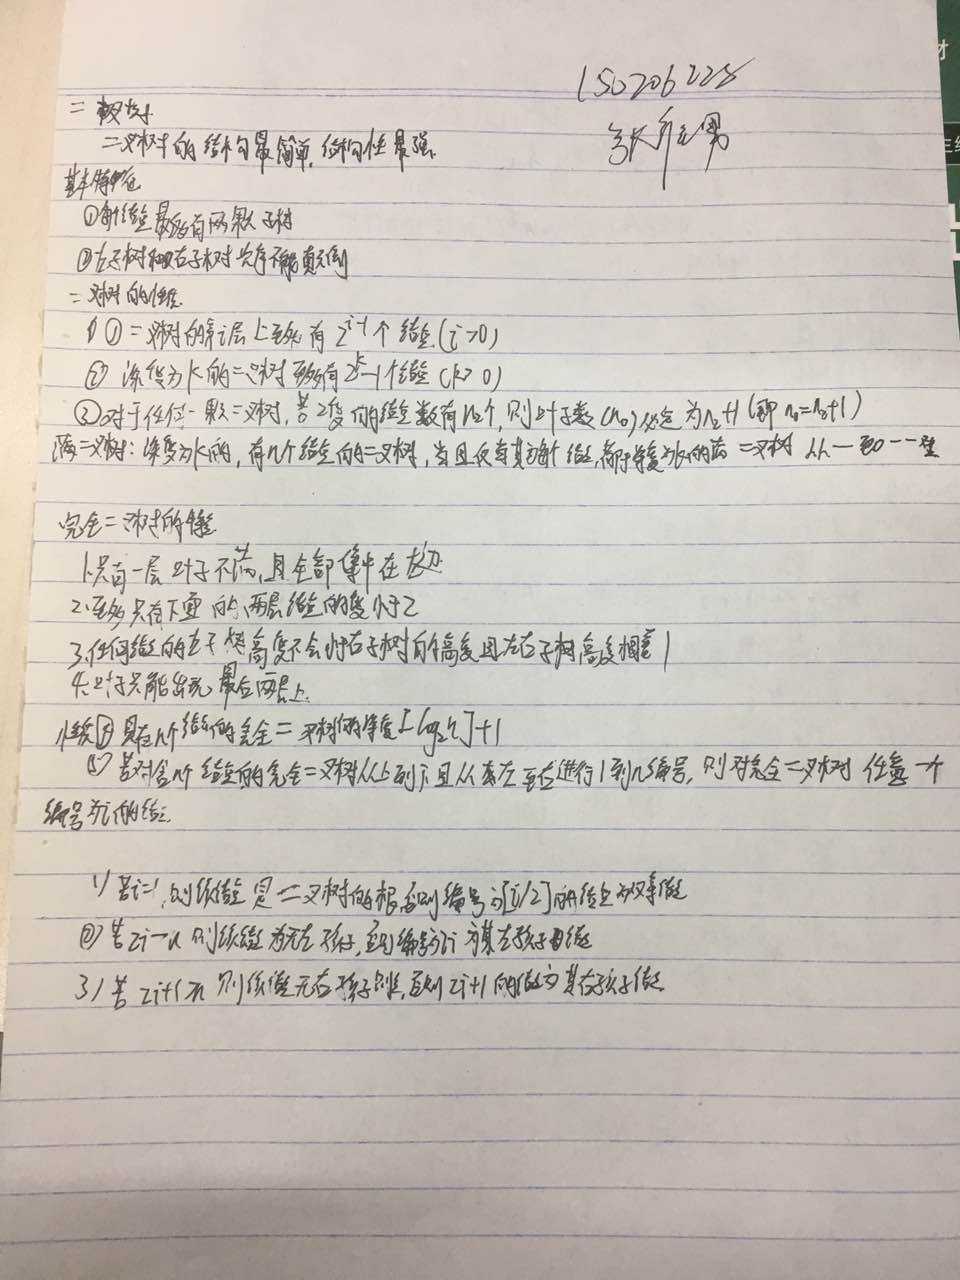 150206225
二叉树
二叉树的结构最简单，结构性最强。
基本特征
①每个结点最多有两颗子树
②左子树和右子树次序不能颠倒
二叉树的性质
①二叉树的第i层上至多有2^{i-1}个结点(i>0)
② 深度为k的二叉树至多有2^k-1个结点(k>0)
③对于任何一颗二叉树，若2度的结点数有n₂个，则叶子数(n₀)必定为n₂+1(即n₀=n₂+1)
满二叉树：深度为k的，有n个结点的二叉树，当且仅当其每个结点都与深度为k的满二叉树从一到n一一
完全二叉树的特性
1.只有一层叶子不满，且全部集中在左边
2.至多只有下面的两层结点的度小于2
3.任何结点的左子树高度不会小于右子树的高度且左右子树高度相差1
4.叶子只能出现最后两层上
性质④具有n个结点的完全二叉树的深度[log₂n]+1
⑤若对含n个结点的完全二叉树从上到下且从左至右进行1到n编号，则对完全二叉树 任意一个
编号为i的结点
1)若i=1，则该结点是二叉树的根，否则编号为[i/2]的结点为双亲结点
②若2i>n 则该结点为无左孩子，否则编号为2i为其左孩子结点
3)若2i+1>n 则该结点无右孩子，否则2i+1的结点为其右孩子结点